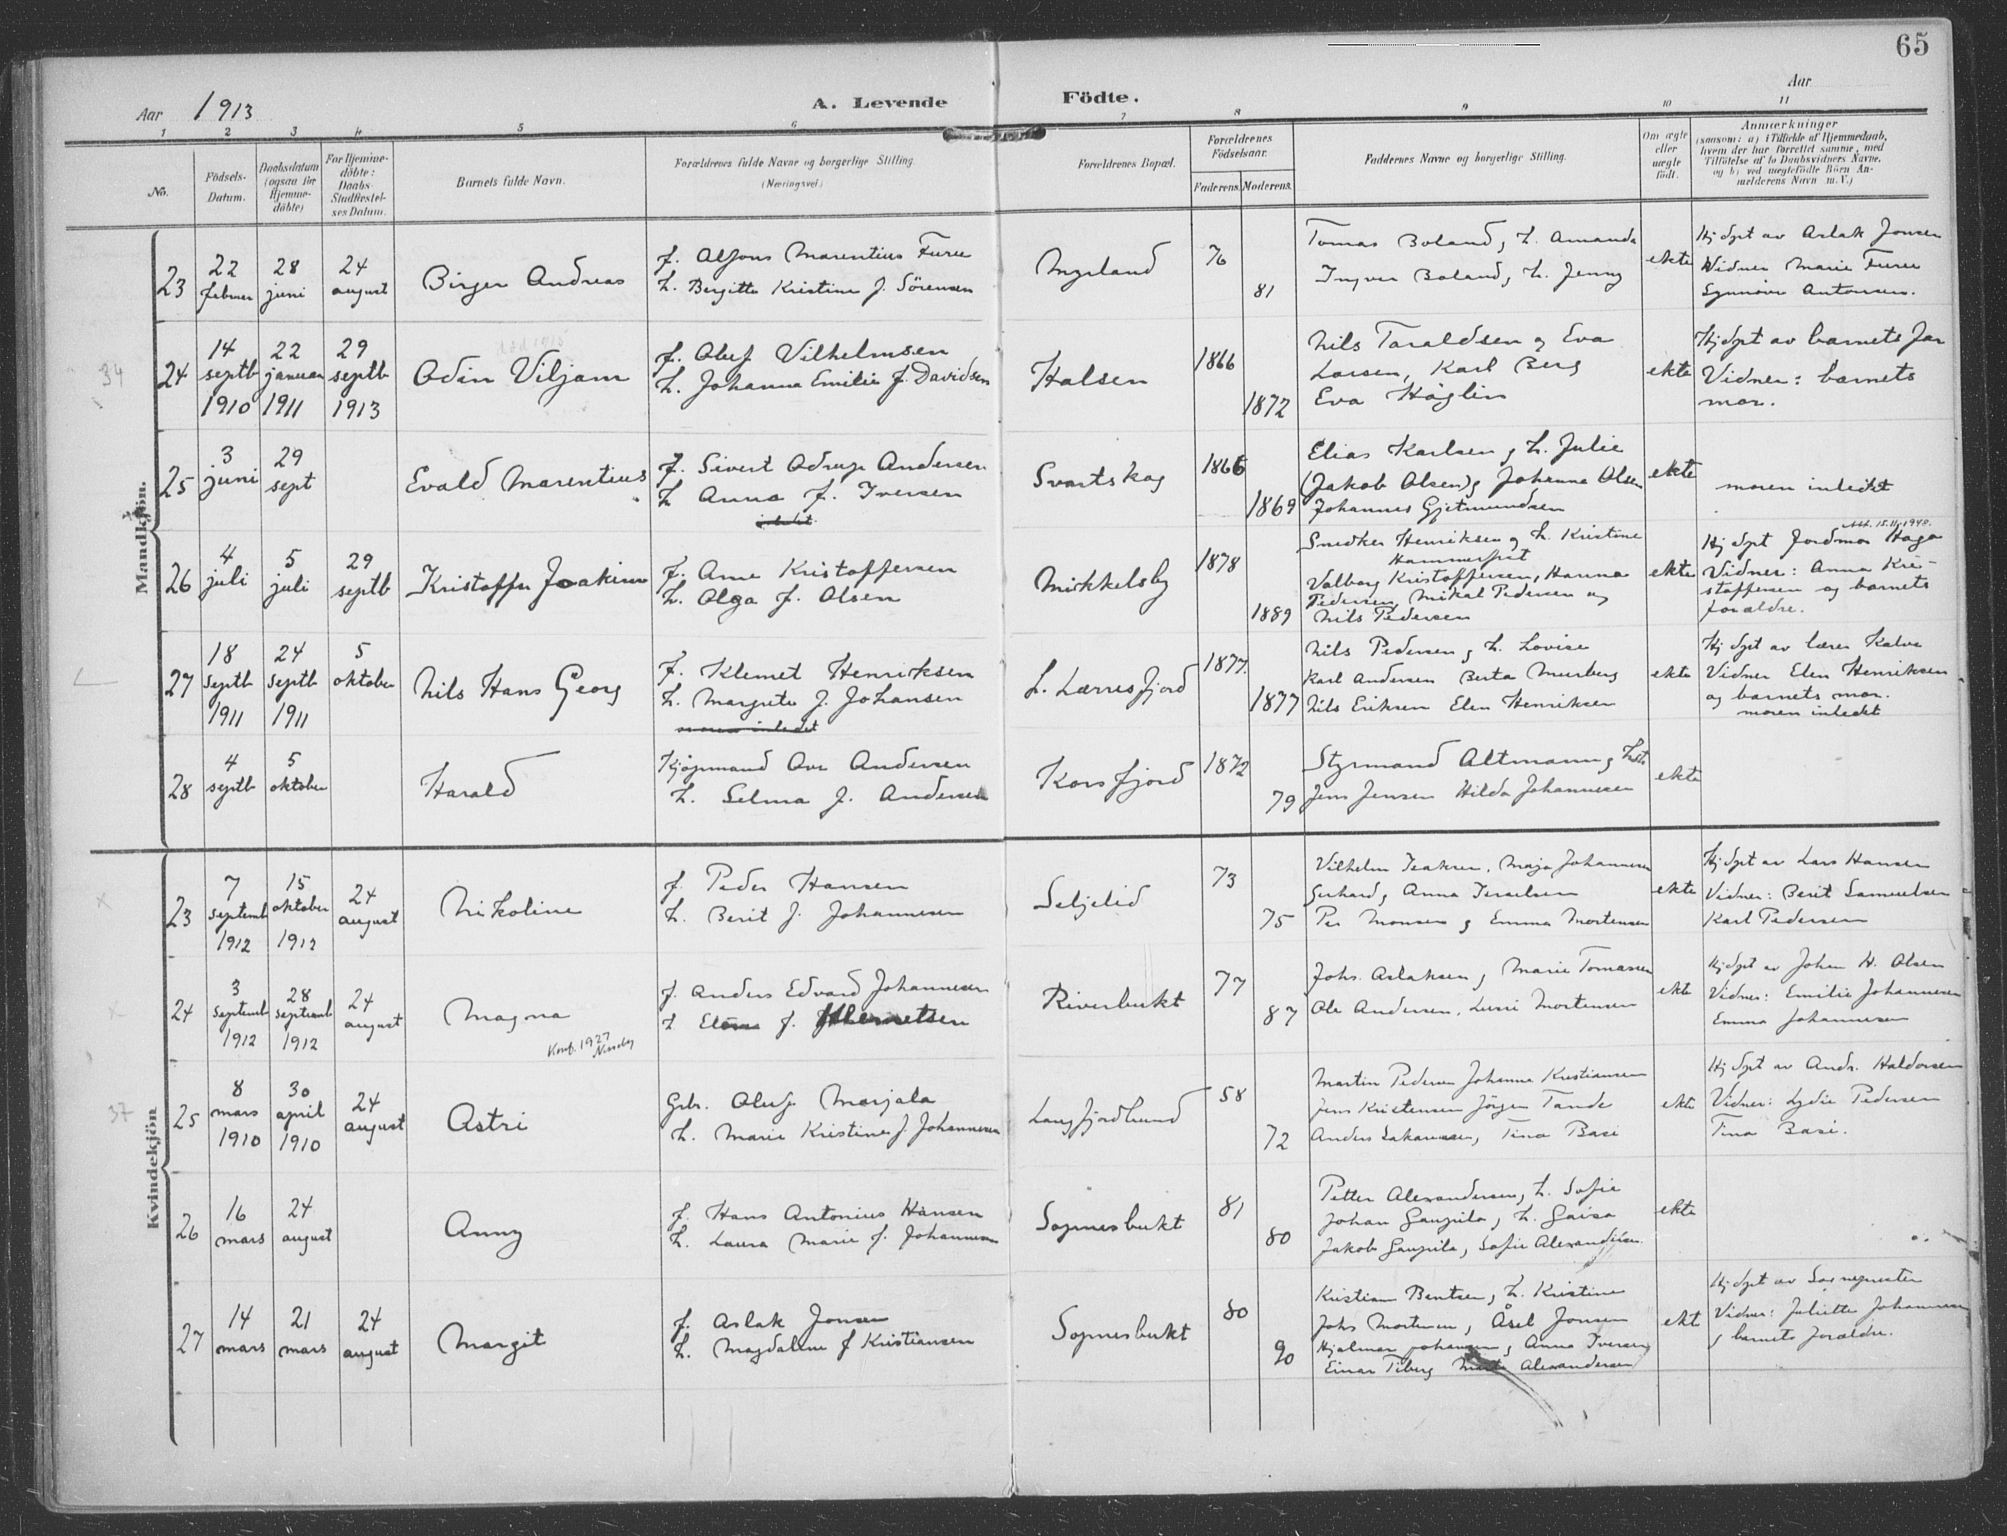 65
Aar 1913
A. Levende Födte.
Aar
1 2 3 4 5 6 7 8 9 10 11
No.
Födsels-Datum.
Daabsdatum (ogsaa for Hjemme-döbte)
For Hjemme-döbte: Daabs-Stadfæstel-ses Datum.
Barnets fulde Navn.
Forældrenes fulde Navne og borgerlige Stilling.
(Næringsvei)
Forældrenes Bopæl.
Forældrenes Födselsaar.
Faderens. Moderens.
Faddernes Navne og borgerlige Stilling.
Om ægte eller uægte födt.
Anmærkninger
(saasom: a) i Tilfælde af Hjemmedaab,
hvem der har forrettet samme, med
Tilföielse af to Daabsvidners Navne,
og b) ved uægtefödte Börn An-
melderens Navn m. V.)
Mandkjön.
23
22 februar
28 juni
24 august
Birger Andreas
f. Alfons Marentius Furu
h. Bergitte Kristine f. Sörensen
Myrland
76
81
Tomas Boland, h. Amanda
Ingvar Boland, h. Jenny
ekte
Hj døpt av Aslak Jonsen
Vidner Marie Furu
Synnøve Antonsen.
34
24
14 septb 1910
22 januar 1911
29 septb 1913
død 1913
Odin Viljam
f. Oluf Vilhelmsen
h. Johanna Emilie f. Davidsen
Halsen
1866
1872
Nils Taraldsen og Eva
Larsen, Karl Berg
Eva Höglin
ekte
Hj døpt av barnets far
Vidner: barnets
mor.
25
3 juni
29 sept
Evald Marentius
f. Sivert Odrup Andersen
h. Anna f. Iversen
Svartskog
1866
1869
Elias Karlsen og h. Julie
(Jakob Olsen) og Johanna Olsen
Johannes Gjetmundsen
ekte
moren inledet
26
4 juli
5 juli
29 septb
Kristoffer Joakim
f. Arne Kristoffersen
h. Olga f. Olsen
Mikkelsby
1878
1889
Snedker Henriksen og h. Kristine
Hammerfest
Valborg Kristoffersen, Hanna
Pedersen, Mikal Pedersen og
Nils Pedersen
ekte
Att. 15.11.1948.
Hj døpt Jordmor Haga
Vidner: Anna Kri-
stoffersen og barnets
forældre.
27
18 septb 1911
24 septb 1911
5 oktober
Nils Hans Georg
f. Klemet Henriksen
h. Margrete f. Johansen
moren inledet
L. Lærresfjord
1877.
1877
Nils Pedersen og h. Lovise
Karl Andersen Berta Murberg
Nils Eriksen Elen Henriksen
ekte
Hj døpt av lærer Kalve
Vidner Elen Henriksen
og barnets mor.
moren inledet
28
4 septb
5 oktober
Harald
Kjøpmand Ove Andersen
h. Selma f. Andersen
Korsfjord
1872
79
Styrmand Altmann og
Jens Jensen Hilda Johannesen
ekte
Kvindekjön
23
7 septemb 1912
15 oktober 1912
24 august
Nikoline
f. Peder Hansen
h. Berit f. Johannesen
Seljelid
73
75
Vilhelm Isaksen, Maja Johannesen
Gerhard og Anna Israelsen
Per Monsen og Emma Mortensen
ekte
Hj døpt av Lars Hansen
Vidner: Berit Samuelsen
Karl Pedersen
24
3 septemb 1912
28 septemb 1912
24 august
Magna
Konf. 1927
f. Anders Edvard Johannesen
Riverbukt
77
87
Johs. Aslaksen og Marie Tomassen
Ole Andersen, Mortensen
ekte
Hj døpt av Johan H. Olsen
Vidner: Emilie Johannesen
Emma Johannesen
37
25
8 mars 1910
30 april 1910
24 august
Astri
Grbr. Oluf Marjala
h. Marie Kristine f. Johannesen
Langfjordbund
58
72
Martin Pedersen Johanna Kristiansen
Jens Kristensen Jörgen Tande
Anders Sakariassen, Tina Basi
ekte
Hj døpt av Andr. Haldorsen
Vidner: Lydie Pedersen
Tina Basi.
26
16 mars
24 august
Anny
f. Hans Antonius Hansen
h. Laura Marie f. Johannesen
Sopnesbukt
81
80
Petter Alexandersen, h. Sofie
Johan Gaupila, h. Gaisa
Jakob Gaupila, Sofie Alexandersen.
ekte
27
14 mars
21 mars
24 august
Margit
f. Aslak Jonsen
h. Magdalene f Kristiansen
Sopnesbukt
80
90
Kristian Bentsen, h. Kristine
Johs Mortensen, Åsel Jonsen
Hjalmar Johansen, Anna Iversen
Einar Tiberg Alexandersen
ekt
Hj døpt av Sogneprestn
Vidner: Juliette Johannesen
og barnets forældre.